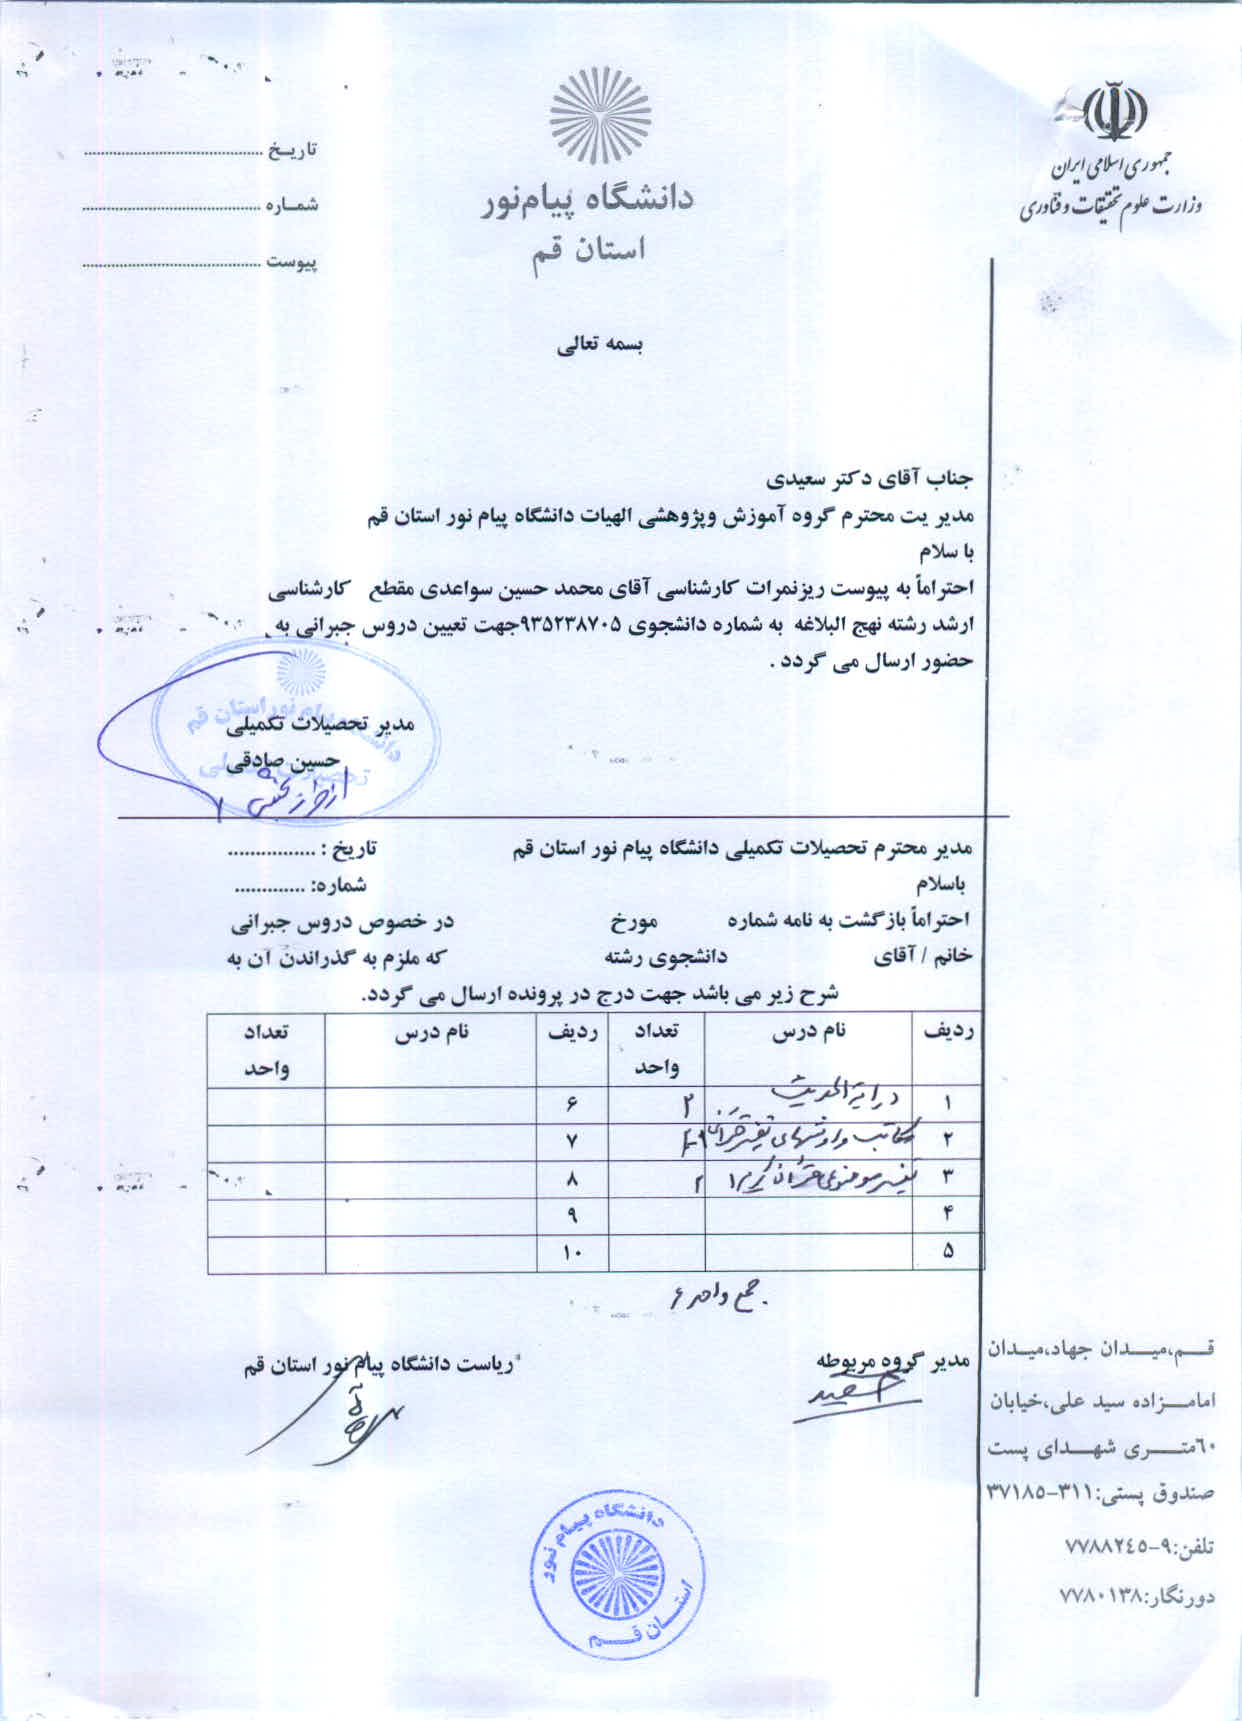 جمهوری اسلامی ایران
وزارت علوم تحقیقات و فناوری
دانشگاه پیام‌نور
استان قم
تاریـخ ....................................
شمـاره ....................................
پیوست ....................................
بسمه تعالی
جناب آقای دکتر سعیدی
مدیر یت محترم گروه آموزش وپژوهشی الهیات دانشگاه پیام نور استان قم
با سلام
احتراماً به پیوست ریزنمرات کارشناسی آقای محمد حسین سواعدی مقطع کارشناسی
ارشد رشته نهج البلاغه به شماره دانشجوی ۹۳۵۲۳۸۷۰۵جهت تعیین دروس جبرانی به
حضور ارسال می گردد .
مدیر تحصیلات تکمیلی
حسین صادقی
دانشگاه پیام نور استان قم
تحصیلات تکمیلی
مدیر محترم تحصیلات تکمیلی دانشگاه پیام نور استان قم تاریخ : ................
باسلام شماره: .............
احتراماً بازگشت به نامه شماره مورخ در خصوص دروس جبرانی
خانم / آقای دانشجوی رشته که ملزم به گذراندن آن به
شرح زیر می باشد جهت درج در پرونده ارسال می گردد.
ردیف نام درس تعداد واحد ردیف نام درس تعداد واحد
۱ درایة الحدیث ۲ ۶
۲ مکاتب و روشهای تفسیر قرآن ۷
۳ تفسیر موضوعی قرآن کریم ۱ ۲ ۸
۴ ۹
۵ ۱۰
جمع واحد ۶
مدیر گروه مربوطه ریاست دانشگاه پیام نور استان قم
سعید
دانشگاه پیام نور
استـان قــم
قــم،میــدان جهاد،میـدان
امامــزاده سید علی،خیابان
۶۰متــری شهــدای پست
صندوق پستی:۳۱۱-۳۷۱۸۵
تلفن:۹-۷۷۸۸۲۴۵
دورنگار:۷۷۸۰۱۳۸